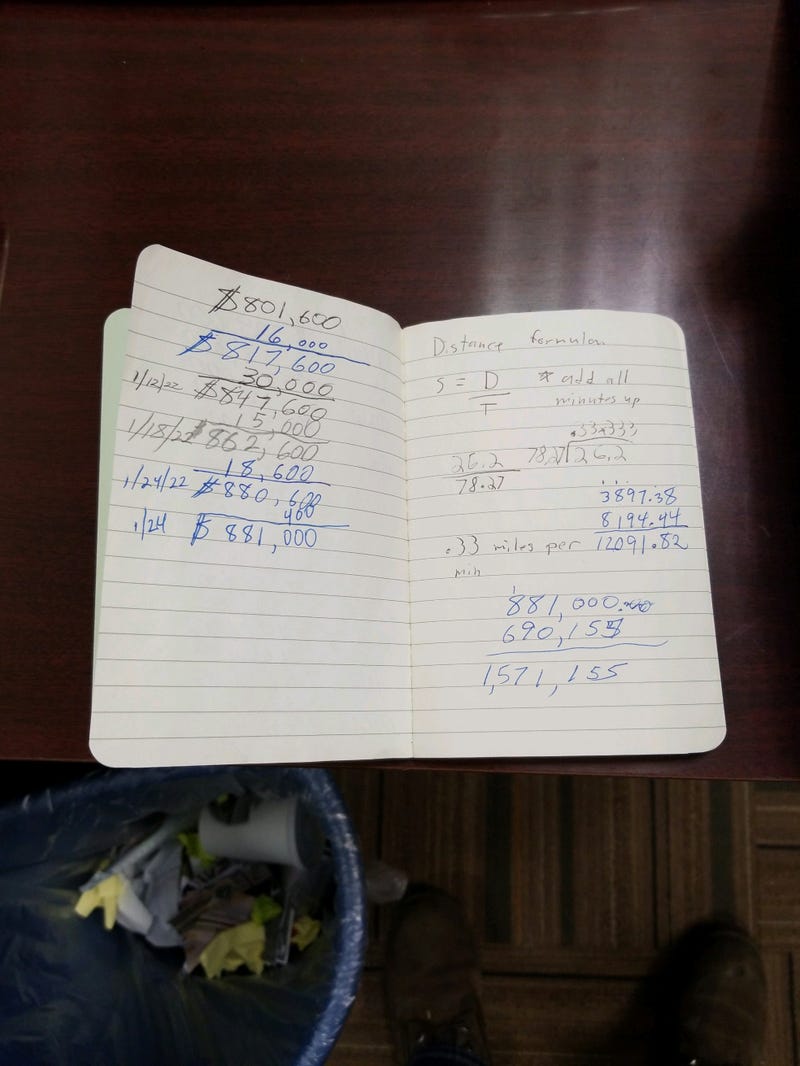 $801,600
16,000
$817,600
30,000
1/12/22 $847,600
15,000
1/18/22 $862,600
18,600
1/24/22 $880,600
400
1/24 $881,000
Distance formula
S = D
T
* add all
minutes up
.33.333
26.2
78.27
78.27 26.2
3897.38
8194.44
12091.82
.33 miles per
min
1
881,000.00
690,155
1,571,155